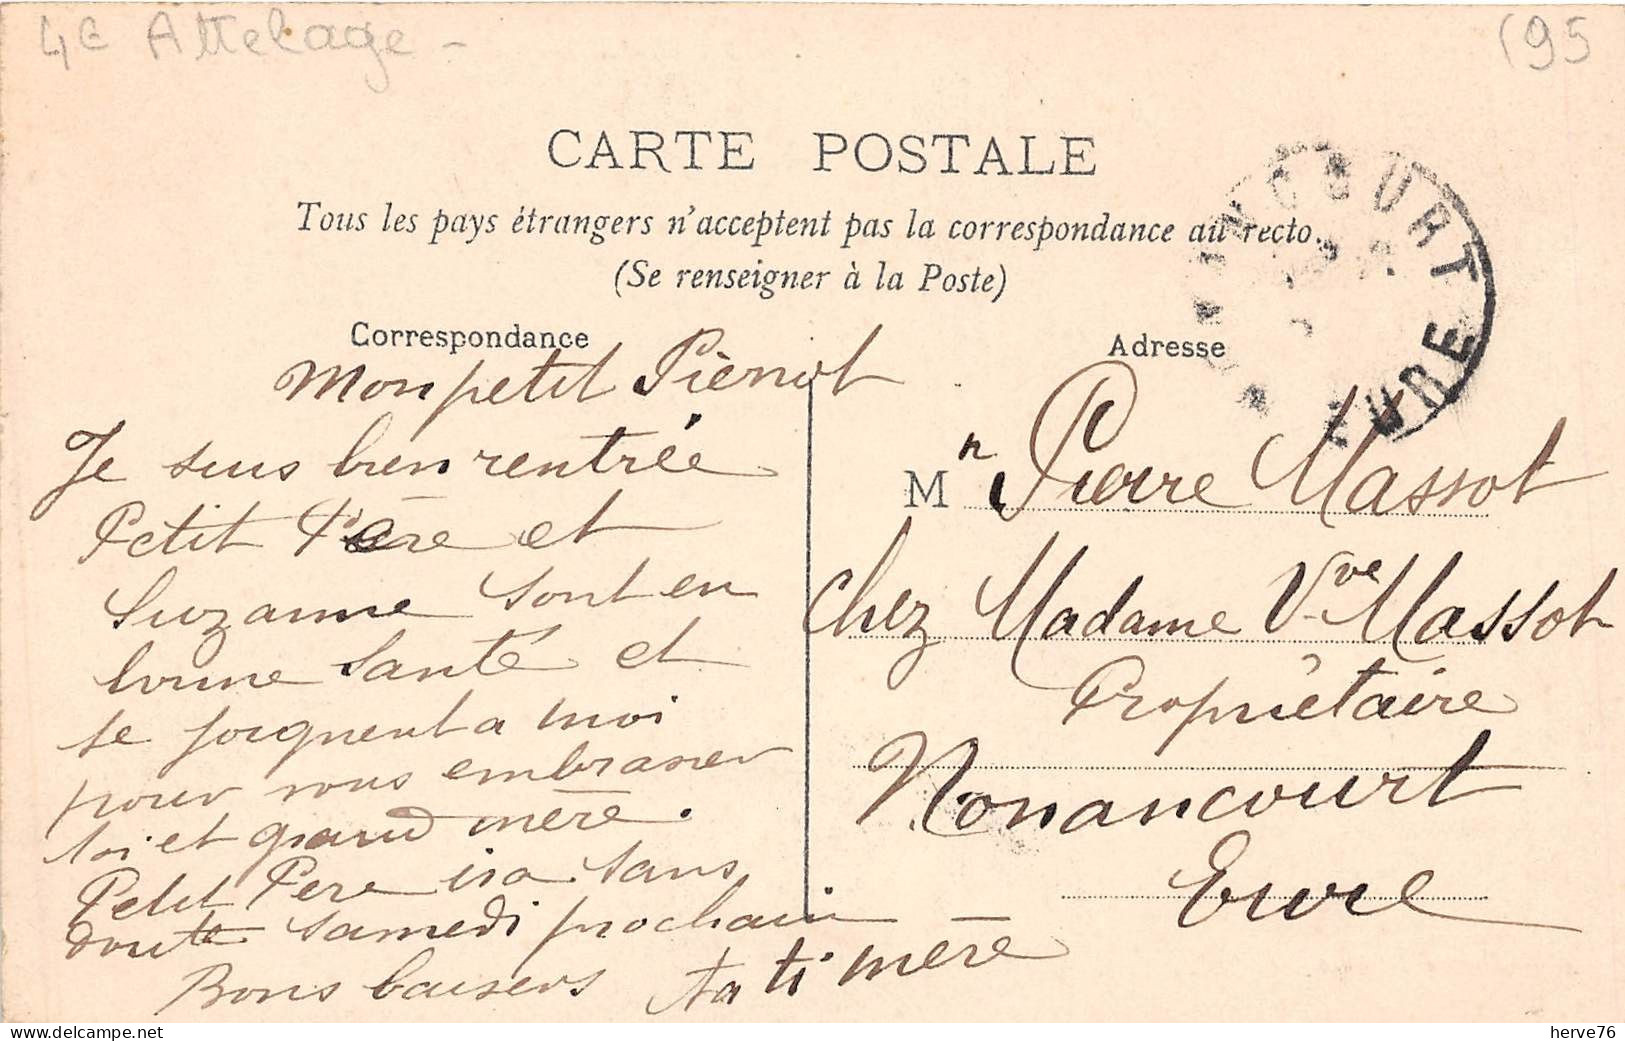 4e Attelage -
(95
CARTE POSTALE
Tous les pays étrangers n'acceptent pas la correspondance au recto.
(Se renseigner à la Poste)
NONANCOURT
EURE
Correspondance
Mon petit Pierrot
Je suis bien rentrée
Petit Père et
Suzanne sont en
bonne santé et
se joignent a moi
pour vous embrasser
toi et grand mère.
Petit Pere ira sans
doute samedi prochain
Bons baisers ta ti mère
Adresse
Mr Pierre Massot
Chez Madame Vve Massot
Propriétaire
Nonancourt
Eure
delcampe.net
herve76